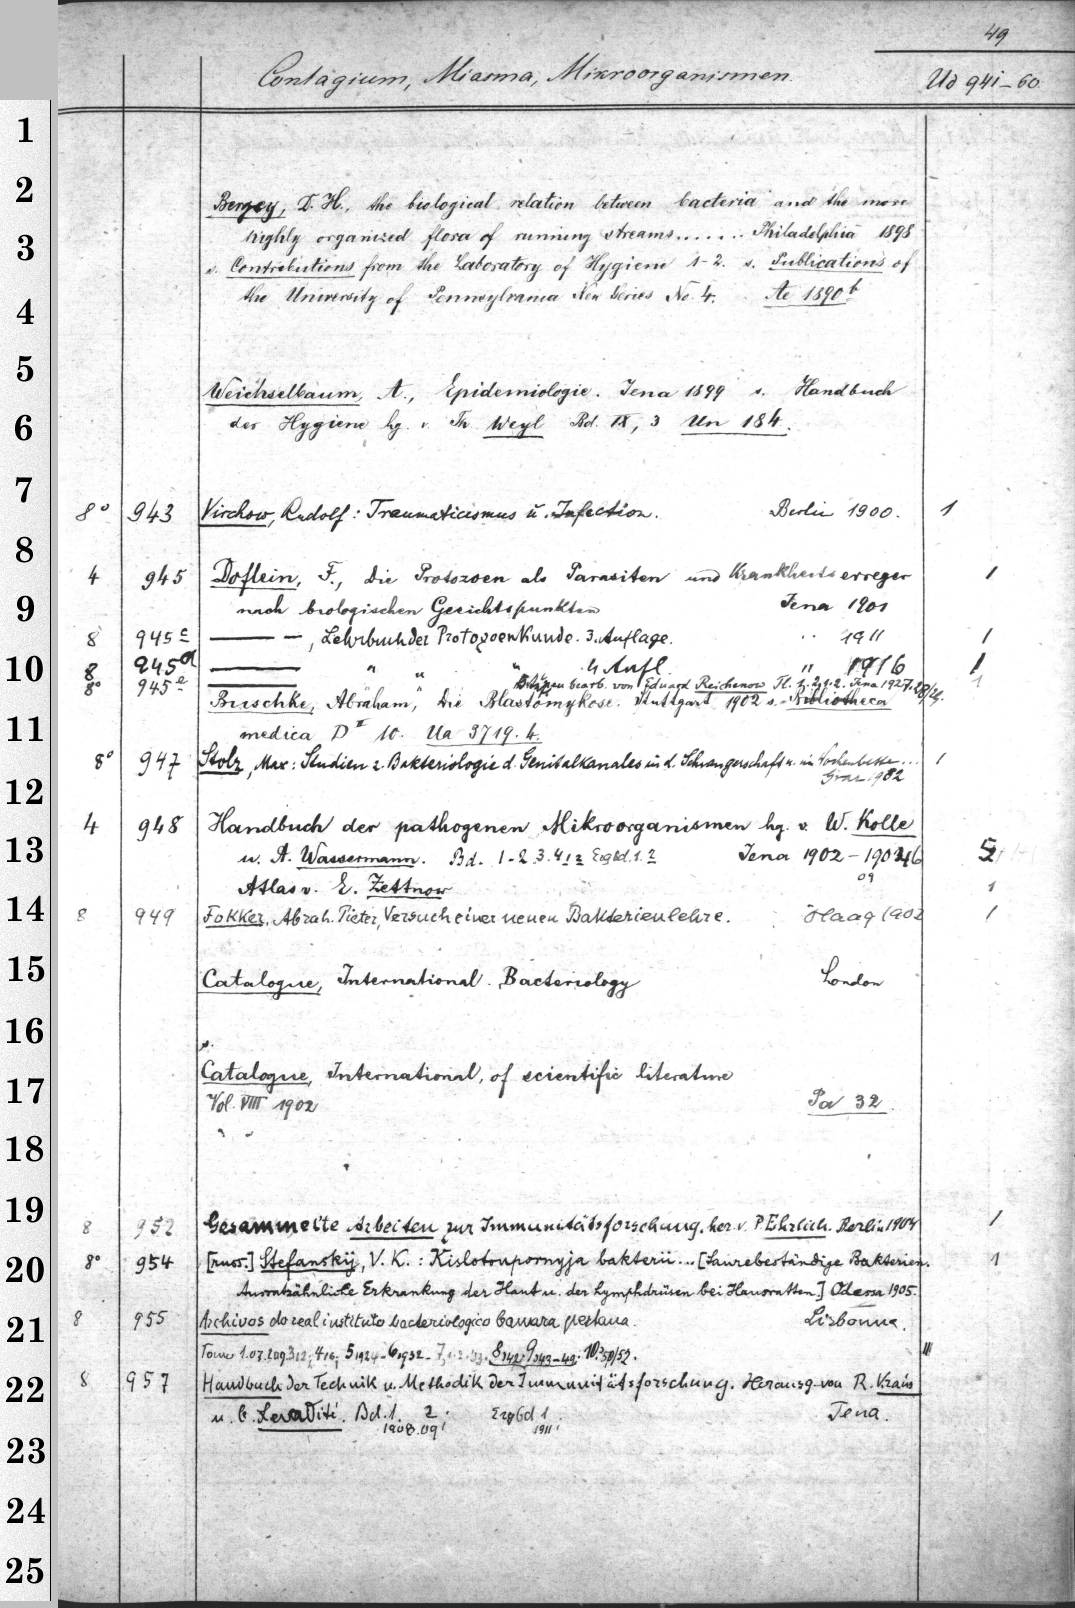 49
Contagium, Miasma, Mikroorganismen. Ud 941-60
1
2
Bergey, D. H., the biological relation between bacteria and the more
3
highly organized flora of running streams....... Philadelphia 1898
s. Contributions from the Laboratory of Hygiene 1-2. s. Publications of
4
the University of Pennsylvania New Series No. 4. Ae 1890 b
5
Weichselbaum, A., Epidemiologie. Jena 1899 s. Handbuch
6
der Hygiene hg. v. Th. Weyl Bd. IX, 3 Un 184.
7
8° 943 Virchow, Rudolf: Traumaticismus u. Infection. Berlin 1900. 1
8
4 945 Doflein, F., Die Protozoen als Parasiten und Krankheitserreger 1
9
nach biologischen Gesichtspunkten Jena 1901
8 945c —— —, Lehrbuch der Protozoenkunde. 3. Auflage. " 1911 1
10
8 945d —— " " " 4 Aufl. " 1916 1
8° 945e —— " " bearb. von Eduard Reichenow Tl. 1. 2,1-2. Jena 1927-28/29. 1
Buschke, Abraham, Die Blastomykose. Stuttgart 1902 s. Bibliotheca
11
medica D II 10. Ua 3719.4.
8° 947 Stolz, Max: Studien z. Bakteriologie d. Genitalkanales in d. Schwangerschaft u. im Wochenbette... 1
12
Graz
4 948 Handbuch der pathogenen Mikroorganismen hg. v. W. Kolle
13
u. A. Wassermann. Bd. 1-2 3. 4,1,2 Ergbd. 1. 2 Jena 1902-
09
Atlas v. E. Zettnow 1
14
8 949 Fokker, Abrah. Pieter, Versuch einer neuen Bakterienlehre. Haag 1902 1
15
Catalogue, International. Bacteriology London
16
s.
17
Catalogue, International, of scientific literature
Vol. VIII 1902 Pa 32.
18
19
8 952 Gesammelte Arbeiten zur Immunitätsforschung. her. v. P. Ehrlich. Berlin 1904 1
20
8° 954 [russ.] Stefanskij, V. K.: Kislotoupornyja bakterii... [Säurebeständige Bakterien. 1
Aussatzähnliche Erkrankung der Haut u. der Lymphdrüsen bei Hausratten] Odessa 1905.
21
8 955 Archivos do real instituto bacteriologico Camara pestana. Lisbonne.
Tome 1.07. 2.09. 3.12; 4.16; 5.1924-6.1932-7,1.2. 8.1942. 9.1943-49. 10.50/52.
22
8 957 Handbuch der Technik u. Methodik der Immunitätsforschung. Herausg. von R. Kraus
u. C. Levaditi. Bd. 1. 2. Ergbd 1. Jena.
1908.09. 1911.
23
24
25